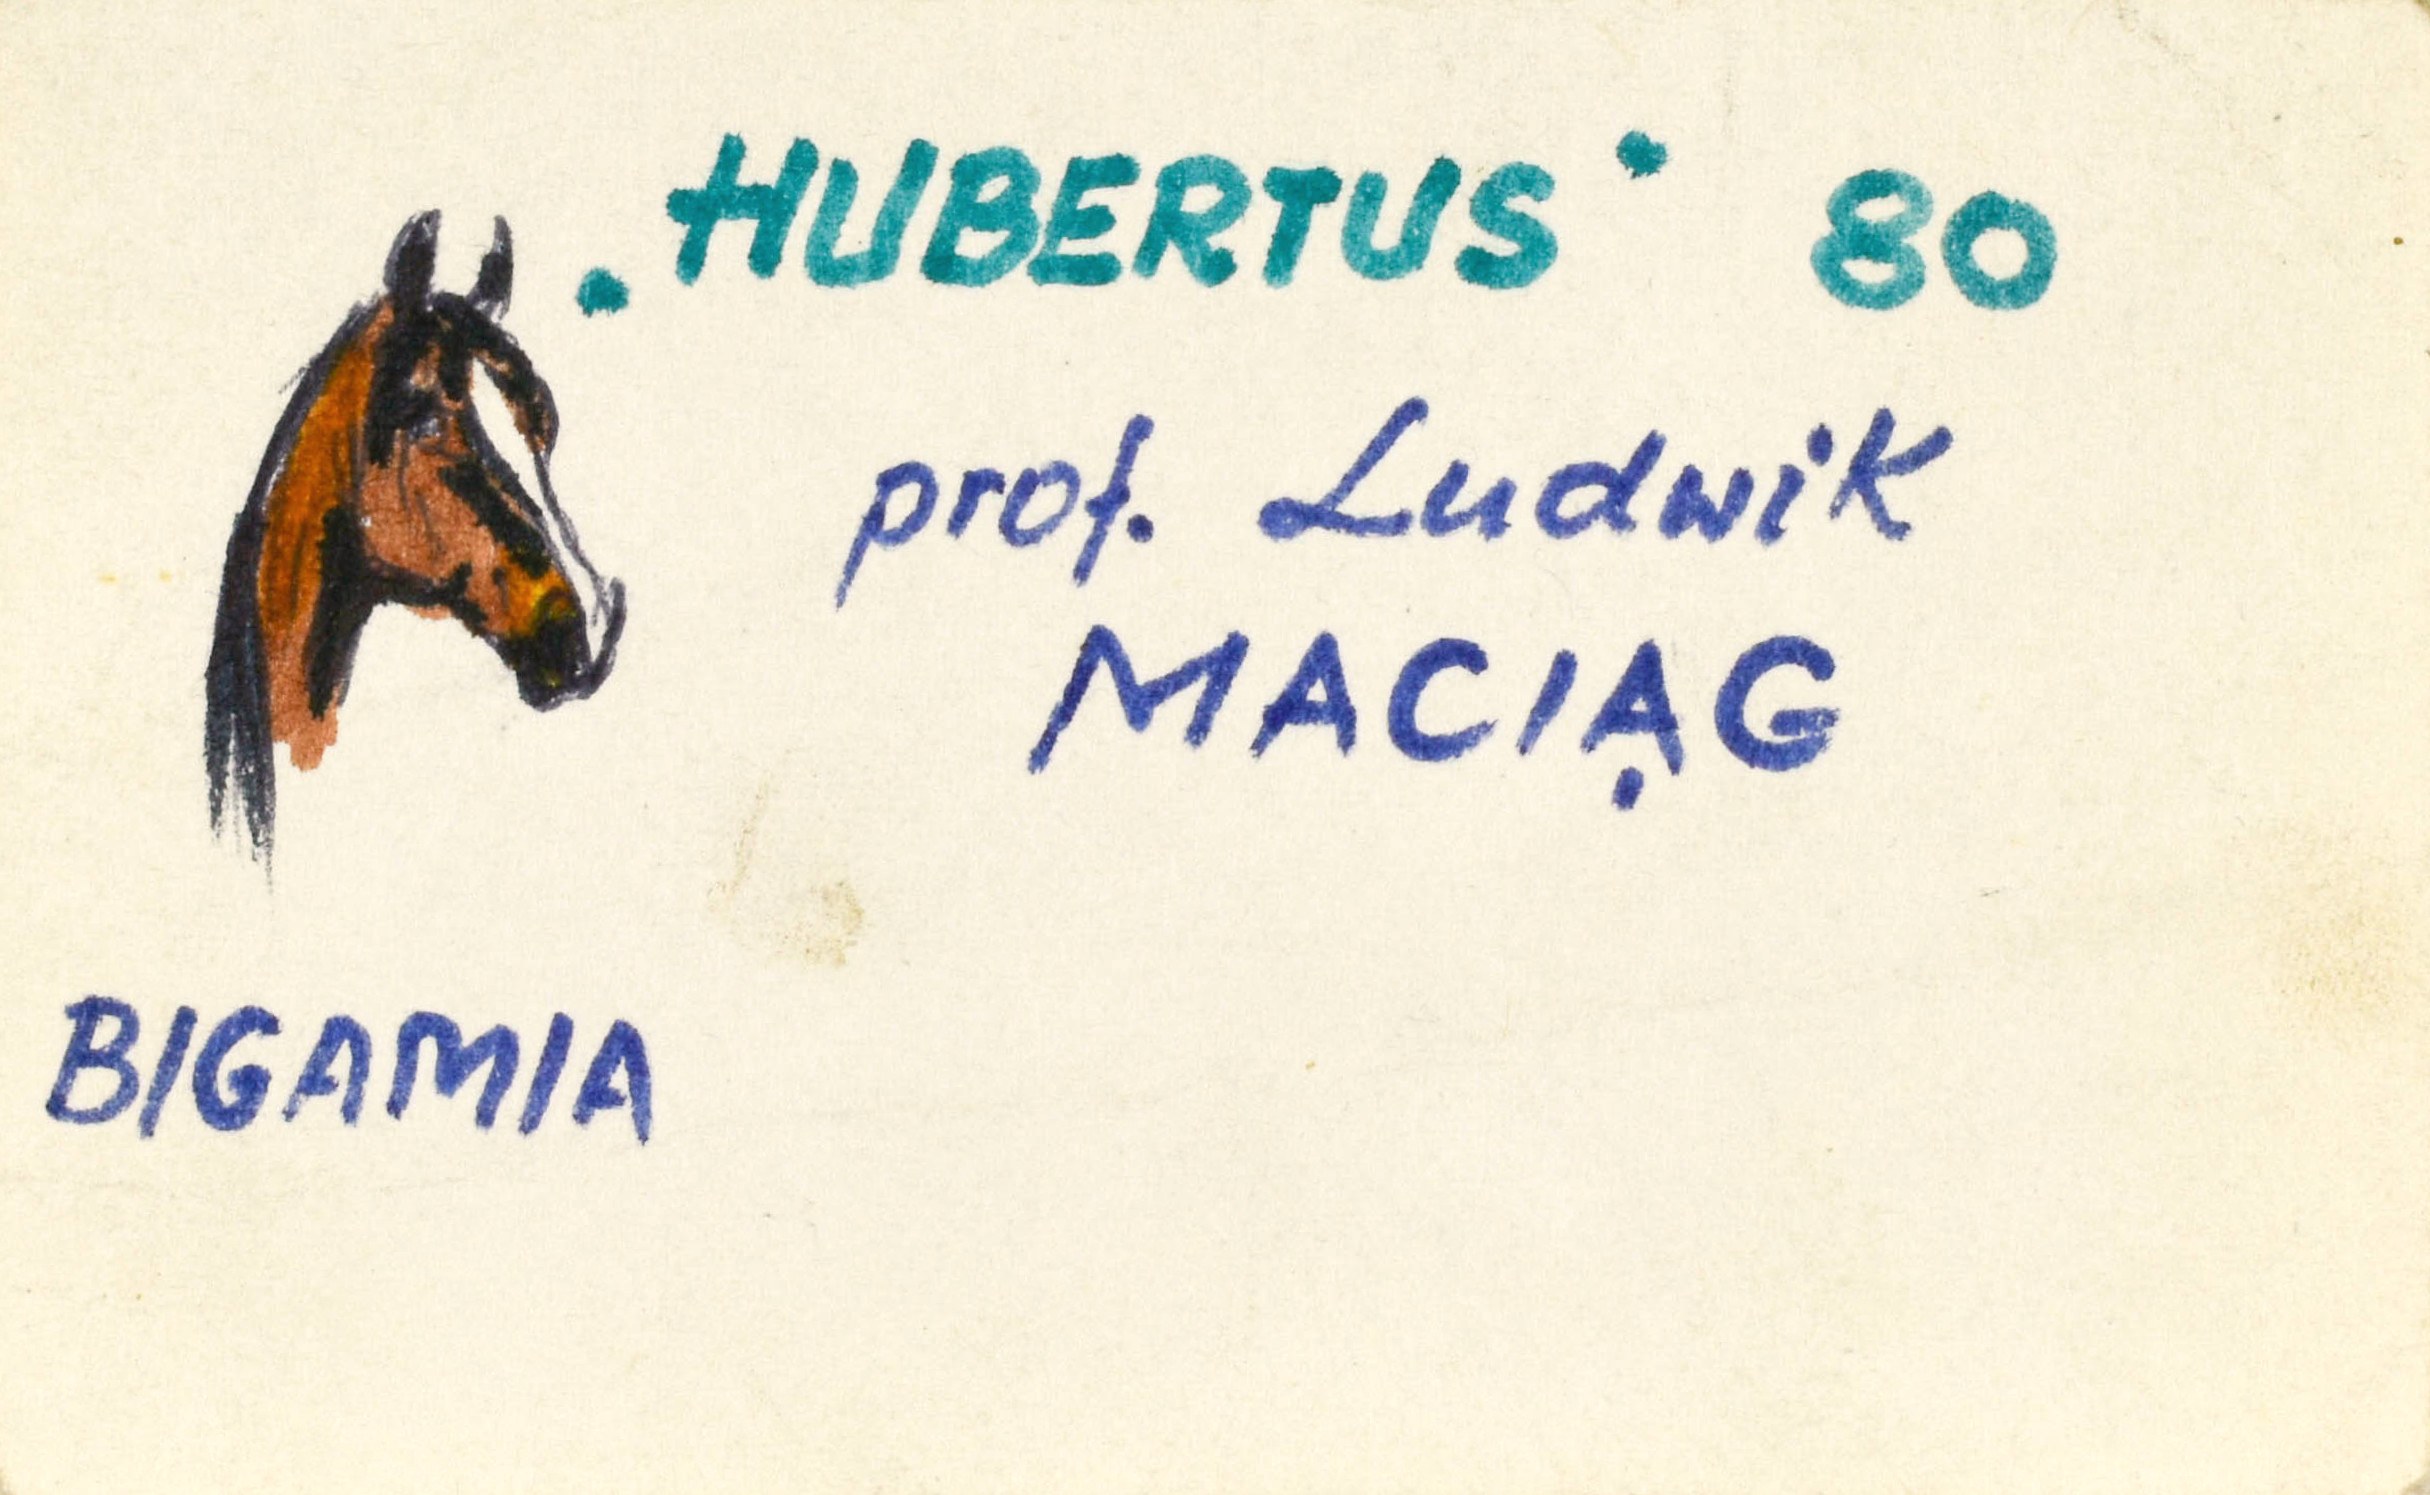 .HUBERTUS˙ 80
prof. Ludwik
MACIĄG
BIGAMIA